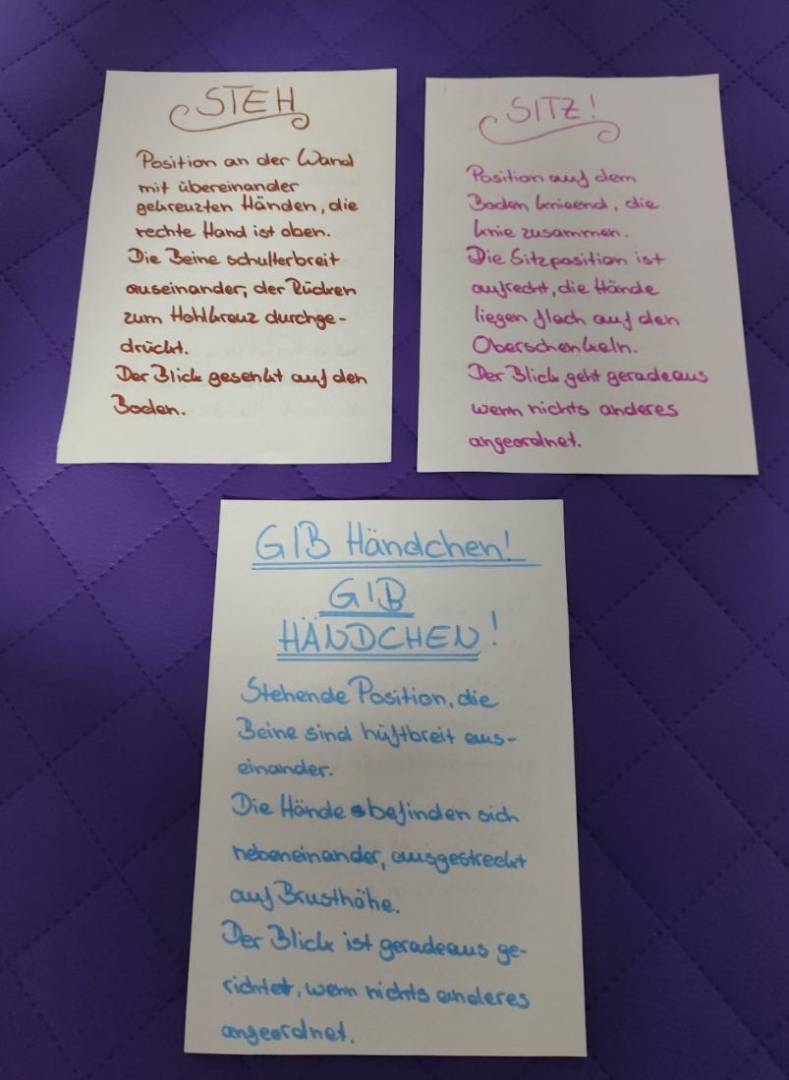 STEH
Position an der Wand
mit übereinander
gekreuzten Händen, die
rechte Hand ist oben.
Die Beine schulterbreit
auseinander, der Rücken
zum Hohlkreuz durchge-
drückt.
Der Blick gesenkt auf den
Boden.
SITZ!
Position auf dem
Boden knieend, die
Knie zusammen.
Die Sitzposition ist
aufrecht, die Hände
liegen flach auf den
Oberschenkeln.
Der Blick geht geradeaus
wenn nichts anderes
angeordnet.
GIB Händchen!
GIB
HÄNDCHEN!
Stehende Position, die
Beine sind hüftbreit aus-
einander.
Die Hände befinden sich
nebeneinander, ausgestreckt
auf Brusthöhe.
Der Blick ist geradeaus ge-
richtet, wenn nichts anderes
angeordnet.